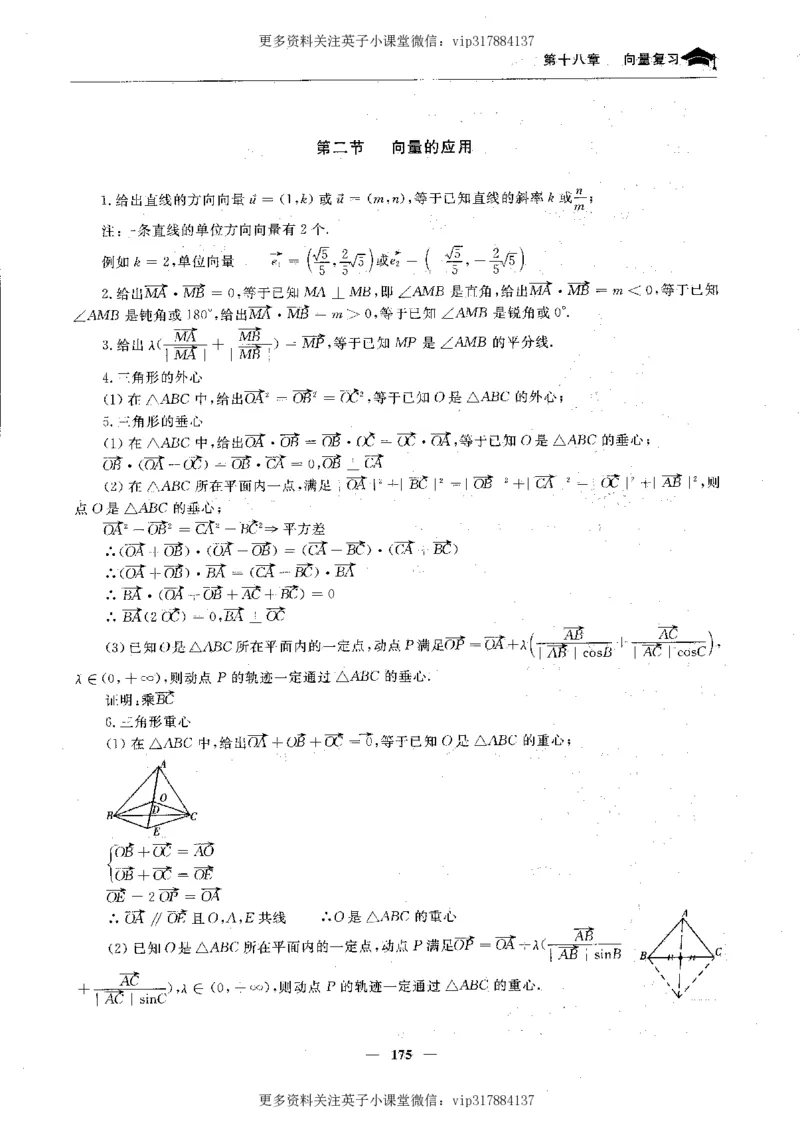 更多资料关注英子小课堂微信：vip317884137
第十八章 向量复习
第二节 向量的应用
1.给出直线的方向向量 u⃗ = (1,k) 或 u⃗ = (m,n),等于已知直线的斜率 k 或 n/m;
注：一条直线的单位方向向量有 2 个.
例如 k = 2,单位向量 e₁⃗ = (√5/5, 2/5√5) 或 e₂⃗ - (- √5/5, - 2/5√5)
2.给出 MA⃗ · MB⃗ = 0,等于已知 MA ⊥ MB,即 ∠AMB 是直角,给出 MA⃗ · MB⃗ = m < 0,等于已知
∠AMB 是钝角或 180°,给出 MA⃗ · MB⃗ = m > 0,等于已知 ∠AMB 是锐角或 0°.
3.给出 λ(MA⃗/|MA⃗| + MB⃗/|MB⃗|) = MP⃗,等于已知 MP 是 ∠AMB 的平分线.
4.三角形的外心
(1) 在 △ABC 中,给出 OA⃗² = OB⃗² = OC⃗²,等于已知 O 是 △ABC 的外心;
5.三角形的垂心
(1) 在 △ABC 中,给出 OA⃗ · OB⃗ = OB⃗ · OC⃗ = OC⃗ · OA⃗,等于已知 O 是 △ABC 的垂心;
OB⃗ · (OA⃗ - OC⃗) = OB⃗ · CA⃗ = 0,OB⃗ ⊥ CA⃗
(2) 在 △ABC 所在平面内一点,满足 |OA⃗|² + |BC⃗|² = |OB⃗|² + |CA⃗|² = |OC⃗|² + |AB⃗|²,则
点 O 是 △ABC 的垂心;
OA⃗² - OB⃗² = CA⃗² - BC⃗² ⇒ 平方差
∴(OA⃗ + OB⃗) · (OA⃗ - OB⃗) = (CA⃗ - BC⃗) · (CA⃗ + BC⃗)
∴(OA⃗ + OB⃗) · BA⃗ = (CA⃗ - BC⃗) · BA⃗
∴ BA⃗ · (OA⃗ + OB⃗ + AC⃗ + BC⃗) = 0
∴ BA⃗(2 OC⃗) = 0,BA⃗ ⊥ OC⃗
(3) 已知 O 是 △ABC 所在平面内的一定点,动点 P 满足 OP⃗ = OA⃗ + λ(AB⃗/|AB⃗|cosB + AC⃗/|AC⃗|cosC),
λ ∈ (0, + ∞),则动点 P 的轨迹一定通过 △ABC 的垂心.
证明:乘 BC⃗
6.三角形重心
(1) 在 △ABC 中,给出 OA⃗ + OB⃗ + OC⃗ = 0⃗,等于已知 O 是 △ABC 的重心;
A
O
D
B
C
E
{OB⃗ + OC⃗ = AO⃗
OB⃗ + OC⃗ = OE⃗
OE⃗ - 2 OP⃗ = OA⃗
∴ OA⃗ // OE⃗ 且 O,A,E 共线 ∴O 是 △ABC 的重心
(2) 已知 O 是 △ABC 所在平面内的一定点,动点 P 满足 OP⃗ = OA⃗ + λ(AB⃗/|AB⃗|sinB
+ AC⃗/|AC⃗|sinC),λ ∈ (0, + ∞),则动点 P 的轨迹一定通过 △ABC 的重心.
A
B
C
— 175 —
更多资料关注英子小课堂微信：vip317884137